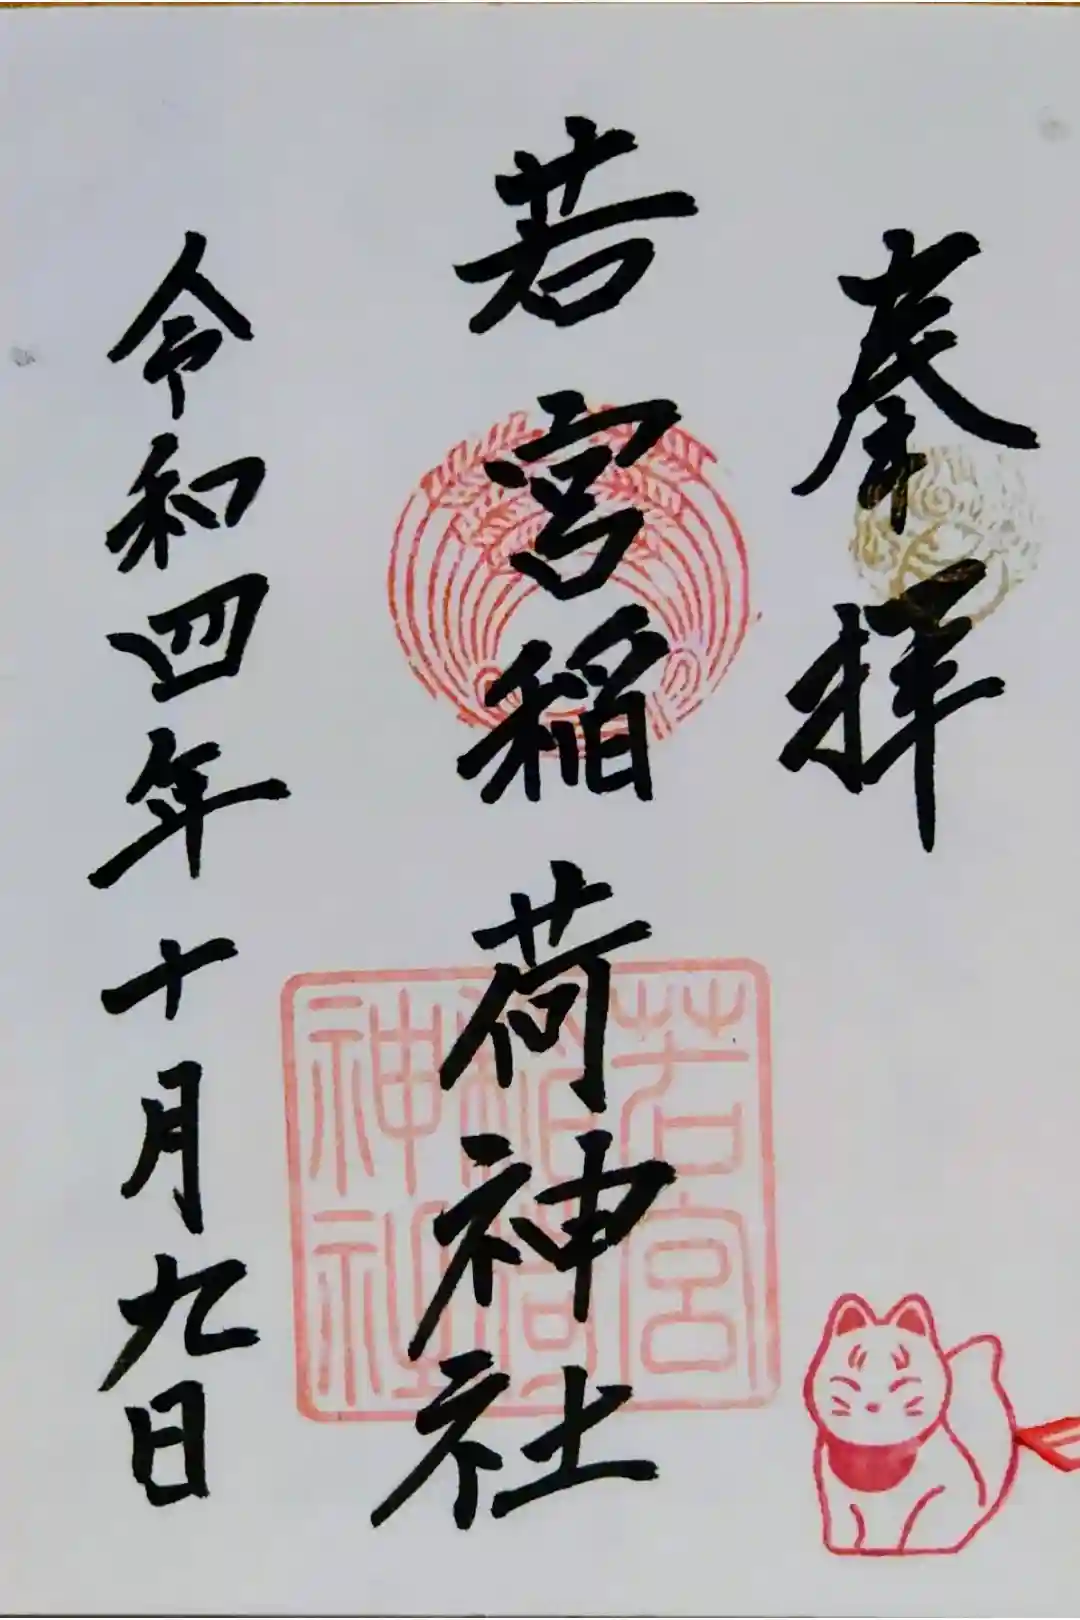 奉拝
若宮稲荷神社
若宮
稲荷
神社
令和四年十月九日